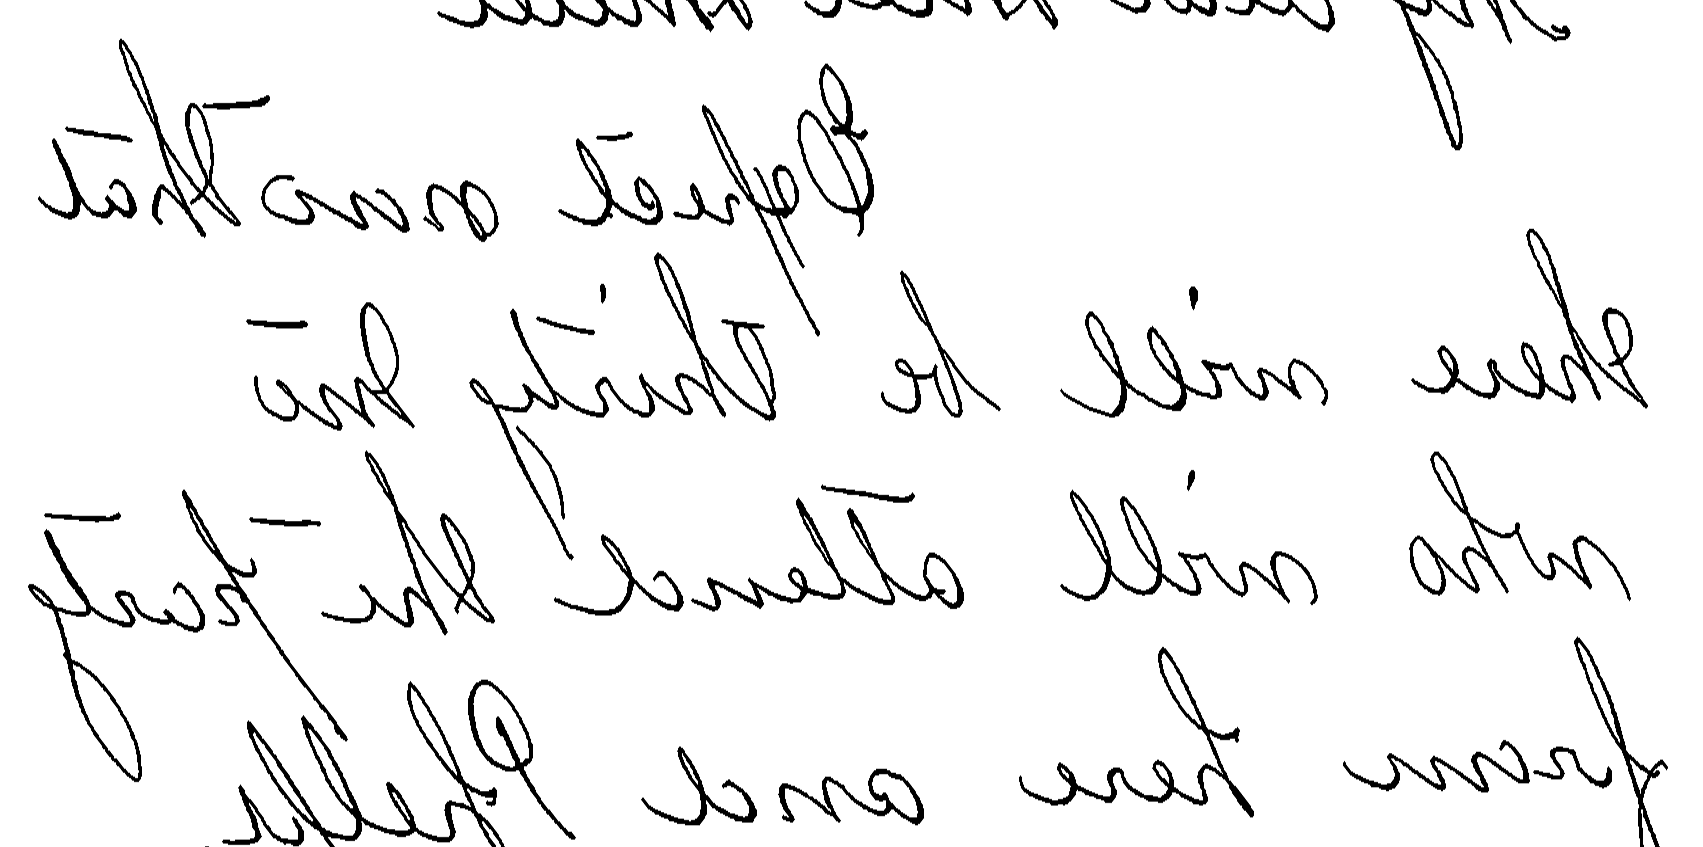 Expect now that
there will be thirty two
who will attend the party
from here and